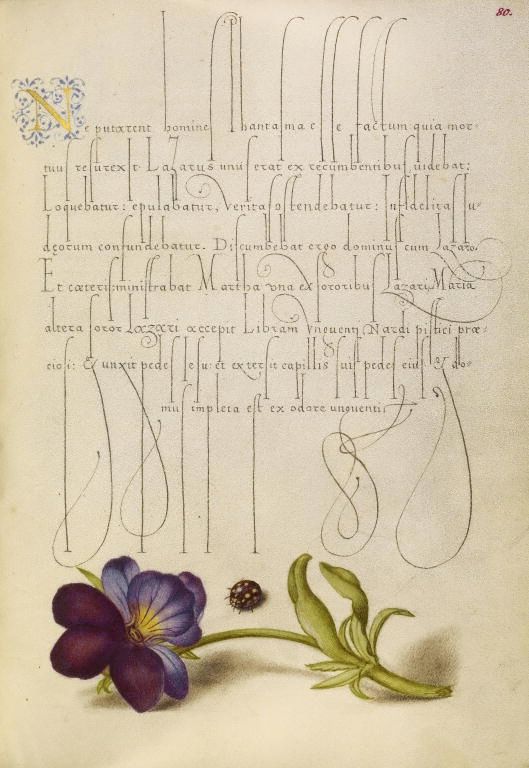 80.
Ne putarent homines phantasma esse factum: quia mor-
tuus resurexit. Lazarus unus erat ex recumbentibus, uidebat:
Loquebatur: epulabatur, Veritas ostendebatur: infidelitas Iu-
dęorum confundebatur. Discumbebat ergo dominus cum Lazaro.
Et cæteris: ministrabat Martha vna ex sororibus Lazari, Maria
altera soror Lazari accepit Libram vnguenti, Nardi pistici præ-
ciosi: & unxit pedes Iesu: et extersit capillis suis pedes eius & do-
mus impleta est ex odore unguenti,